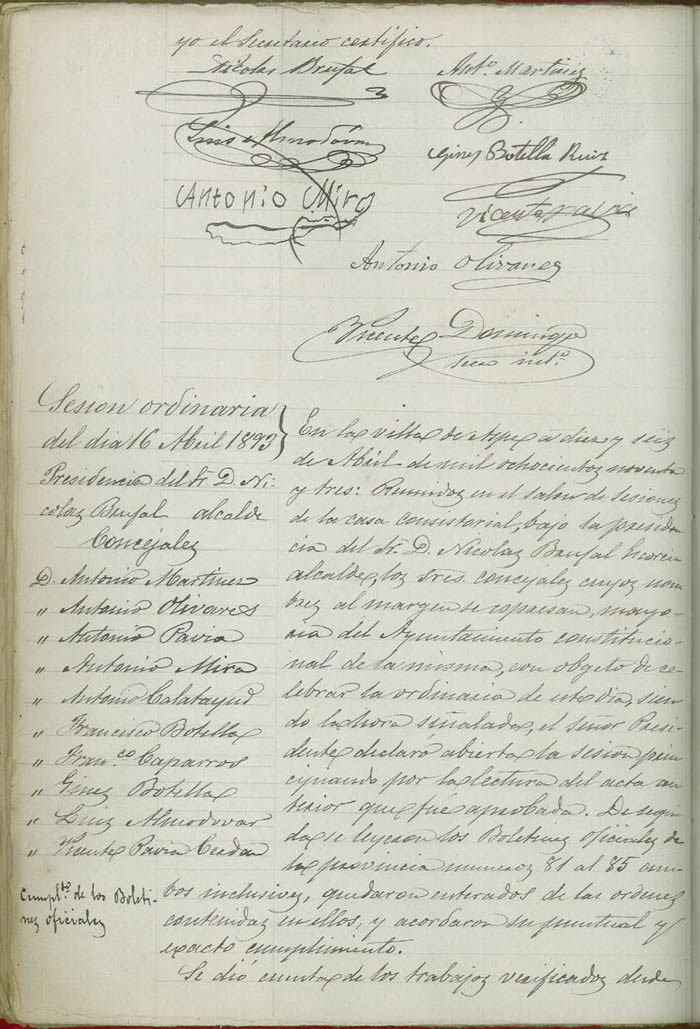 yo el Secretario certifico.
Nicolas Brufal
Ant.º Martinez
Luis Almodóvar
Gines Botella Ruiz
Antonio Mira
Vicente Pavia
Antonio Olivares
Vicente Domingo
Srio int.º
Sesion ordinaria
del dia 16 Abril 1893
Presidencia del Sr. D. Ni-
colaz Brufal alcalde
Concejalez
D. Antonio Martinez
" Antonio Olivares
" Antonio Pavia
" Antonio Mira
" Antonio Calatayud
" Francisco Botella
" Fran.co Caparros
" Ginez Botella
" Luiz Almodovar
" Vicente Pavia Cerdan
Cumpl.to de los Boleti-
nez oficialez
En la villa de Aspe á diez y seiz
de Abril de mil ochocientoz noventa
y tres: Reunidoz en el salon de sesionez
de la casa consistorial, bajo la presiden
cia del Sr. D. Nicolaz Brufal
alcalde, loz Sres. concejalez cuyoz nom
brez al margen se expresan, mayo-
ria del Ayuntamiento constitucio-
nal de la misma, con objeto de ce-
lebrar la ordinaria de este dia, sien
do la hora señalada, el señor Presi-
dente declaró abierta la sesión prin
cipiando por la lectura del acta an
terior que fue aprobada. De segui
da se leyeron los Boletinez oficialez de
la provincia numeroz 81 al 85 am-
bos inclusivez, quedaron enterados de las ordenez
contenidaz en ellos, y acordaron su puntual y
exacto cumplimiento.
Se dió cuenta de los trabajoz verificadoz desde